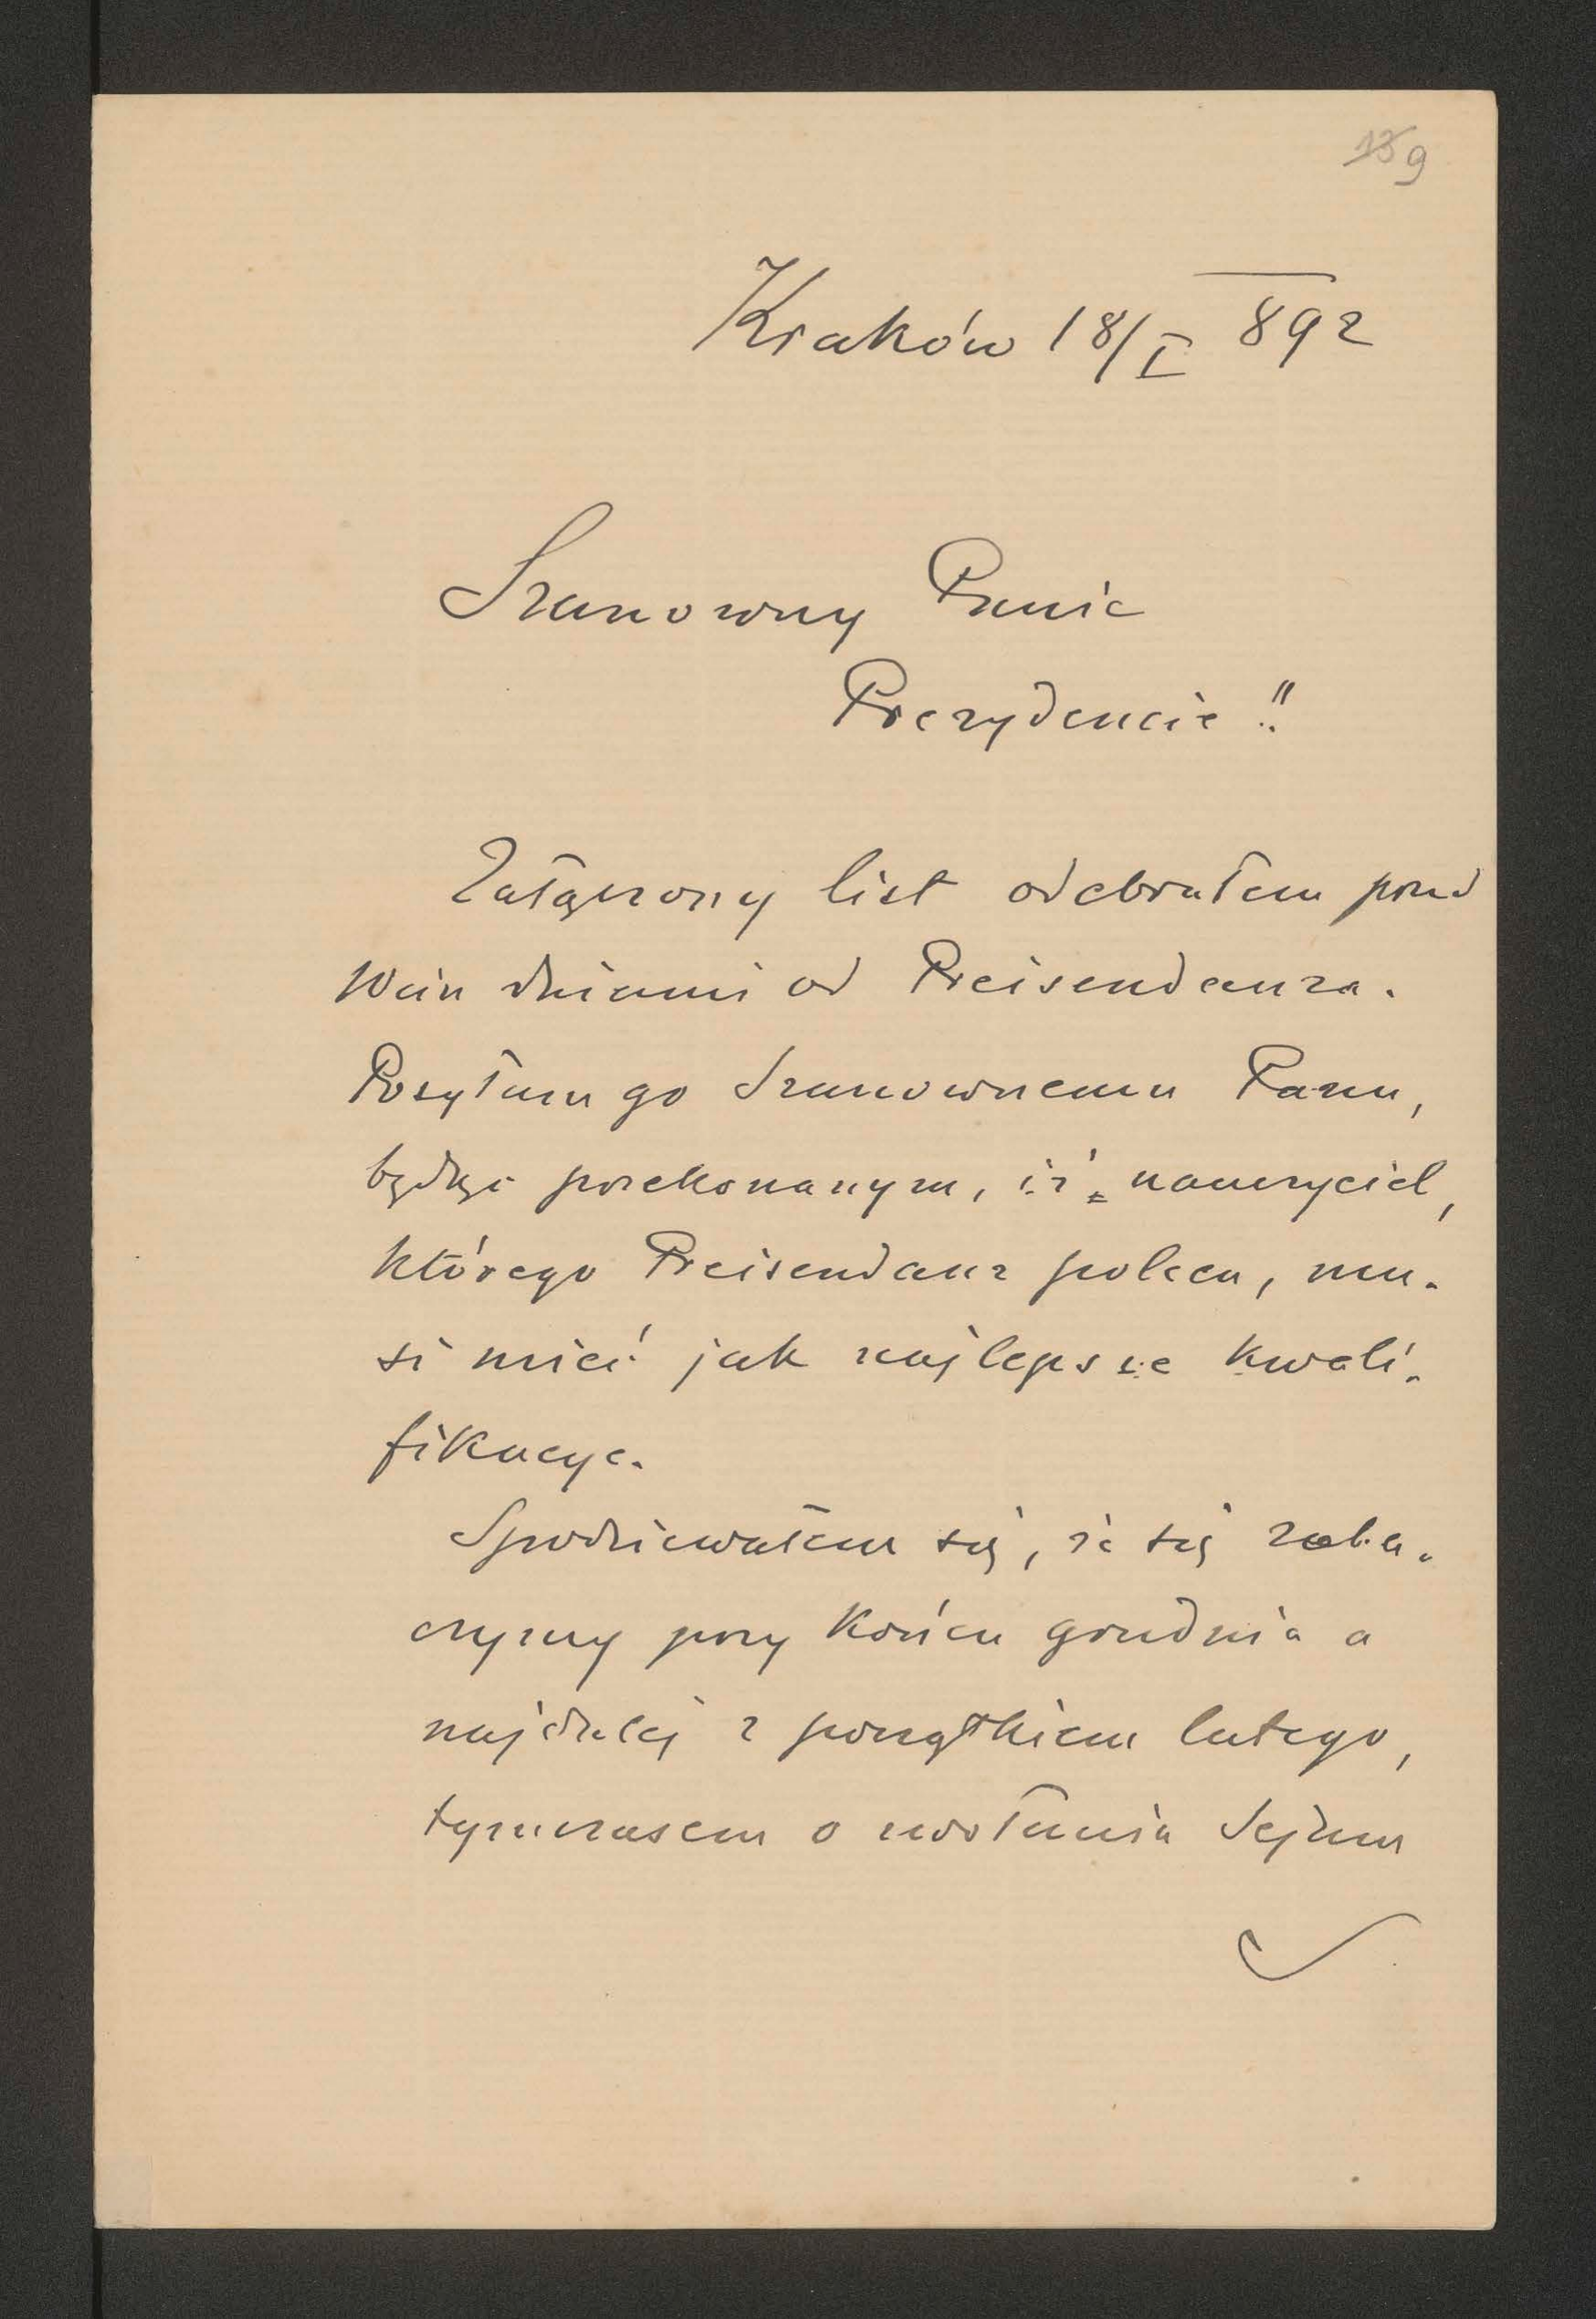 13 9
Kraków 18/I 892
Szanowny Panie
Prezydencie!!
Załączony list odebrałem przed
dniami od Preisendanza.
Posyłam go Szanownemu Panu,
będąc przekonanym, iż nauczyciel,
którego Preisendanz poleca, mu-
si mieć jak najlepsze kwali-
fikacye.
Spodziewałem się, że się zoba-
czymy przy końcu grudnia a
najdalej z początkiem lutego,
tymczasem o zwołaniu Sejmu